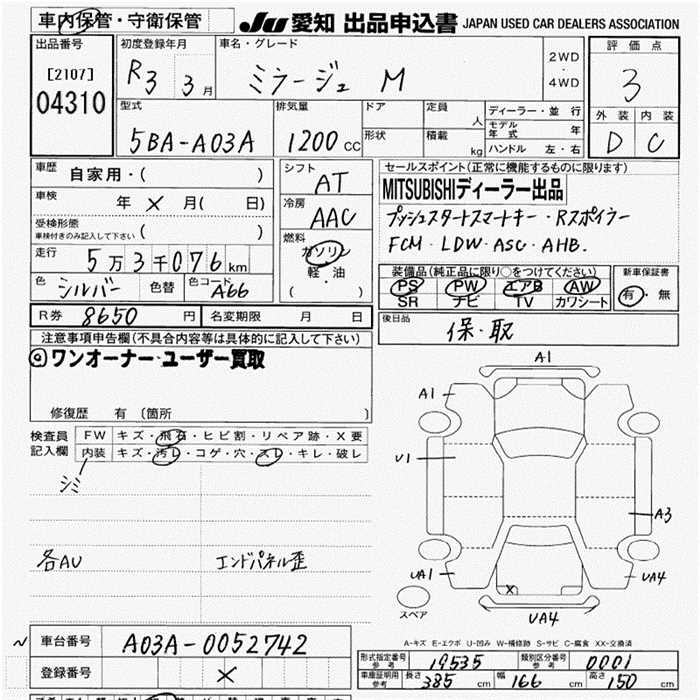 車内保管・守衛保管
JU 愛知 出品申込書 JAPAN USED CAR DEALERS ASSOCIATION
出品番号
[2107]
04310
初度登録年月
R3 3月
車名・グレード
ミラージュ M
2WD
・
4WD
評価点
3
外装 内装
D C
型式
5BA-A03A
排気量
1200 CC
ドア
形状
定員
人
積載
kg
ディーラー・並行
モデル年式 年
ハンドル 左・右
車歴
自家用・( )
車検
年 × 月( 日)
受検形態
車検付きのみ記入して下さい
( )
走行
5万3千076km
色
シルバー
色替
色コード
A66
シフト
AT
冷房
AAC
燃料
ガソリン
軽・油
( )
セールスポイント(正常に機能するものに限ります)
MITSUBISHIディーラー出品
プッシュスタートスマートキー・Rスポイラー
FCM・LDW・ASC・AHB.
装備品(純正品に限り○をつけてください)
PS PW エアB AW
SR ナビ TV カワシート
新車保証書
有・無
R券 8650 円
名変期限 月 日
後日品
保・取
注意事項申告欄(不具合内容等は具体的に記入して下さい)
◎ワンオーナー・ユーザー買取
修復歴 有 〔箇所 〕
検査員
記入欄
FW キズ・飛石・ヒビ割・リペア跡・X要
内装 キズ・汚レ・コゲ・穴・スレ・キレ・破レ
シミ
各AU
エンドパネル歪
A1
A1
U1
A3
UA1
UA4
X
UA4
スペア
A-キズ E-エクボ U-凹み W-補修跡 S-サビ C-腐食 XX-交換済
~
車台番号 A03A-0052742
登録番号 ×
形式指定番号
参考
19535
類別区分番号
参考
0001
車庫証明用
参考
長さ 385 cm 幅 166 cm 高さ 150 cm